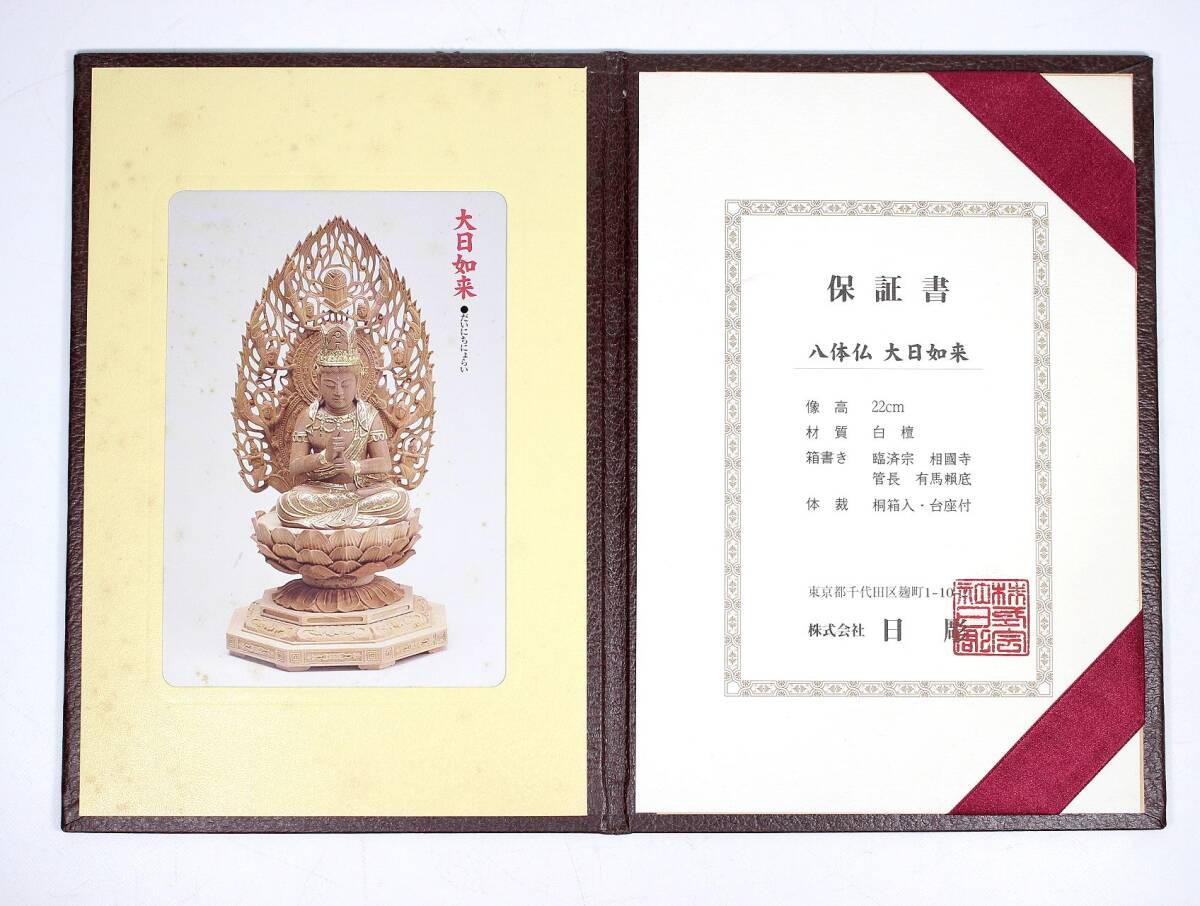 大日如来
●だいにちにょらい
保証書
八体仏 大日如来
像高 22cm
材質 白檀
箱書き 臨済宗 相國寺
管長 有馬賴底
体裁 桐箱入・台座付
東京都千代田区麹町1-10-
株式会社 日